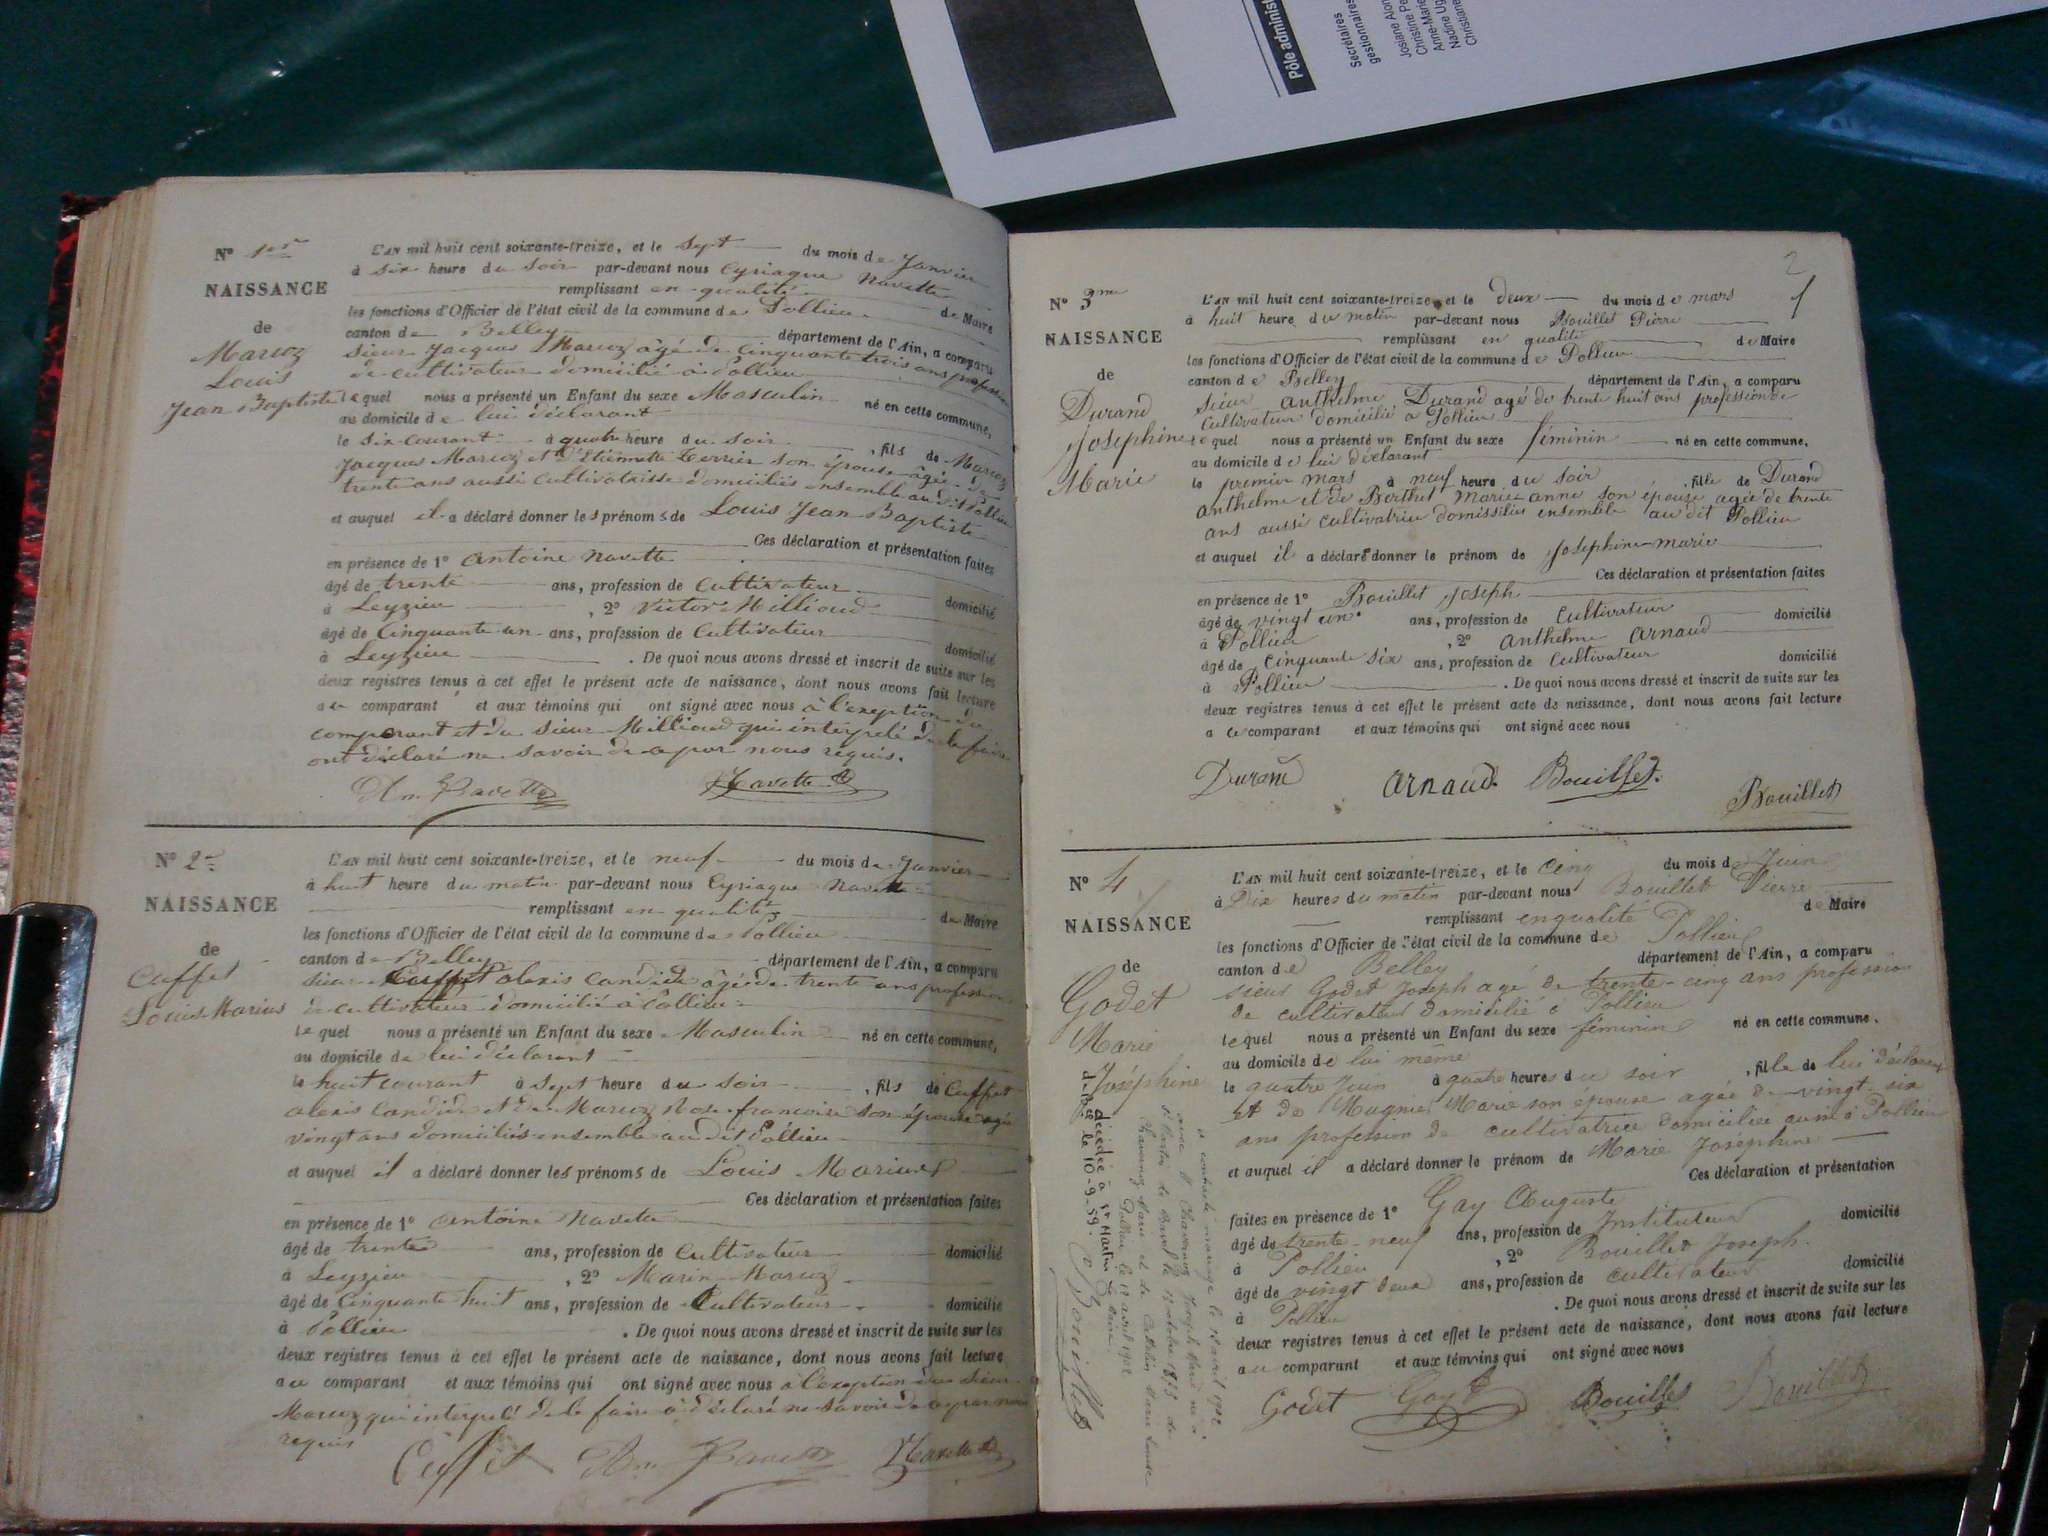 Pôle administ
Secrétaires
gestionnaires
Josiane Alon
Christine Pe
Anne-Marie
Nadine Ug
Christiane
N° 1er
NAISSANCE
de
Marcoz
Louis
Jean Baptiste
L'AN mil huit cent soixante-treize, et le sept du mois de Janvier
à six heure du soir par-devant nous Cyriaque Navette
remplissant en qualité de Maire
les fonctions d'Officier de l'état civil de la commune de Pollieu
canton de Belley département de l'Ain, a comparu
sieur Jacques Marcoz âgé de cinquante trois ans profession
de cultivateur domicilié à Pollieu
lequel nous a présenté un Enfant du sexe Masculin né en cette commune,
au domicile de lui déclarant
le six courant à quatre heure du soir, fils de Marcoz
Jacques Marcoz et d'Etiennette Terrier son épouse âgée de
trente ans aussi cultivatrisse domiciliés ensemble au dit Pollieu
et auquel il a déclaré donner les prénoms de Louis Jean Baptiste
Ces déclaration et présentation faites
en présence de 1° Antoine Navette
âgé de trente ans, profession de Cultivateur domicilié
à Leyzieu, 2° Victor Millioud
âgé de Cinquante un ans, profession de Cultivateur domicilié
à Leyzieu. De quoi nous avons dressé et inscrit de suite sur les
deux registres tenus à cet effet le présent acte de naissance, dont nous avons fait lecture
au comparant et aux témoins qui ont signé avec nous à l'exeption du
comparant et du sieur Millioud qui interpelé de le faire
ont déclaré ne savoir de ce par nous requis.
An. Navette Navette
N° 2e
NAISSANCE
de
Cuffet
Louis Marius
L'AN mil huit cent soixante-treize, et le neuf du mois de Janvier
à huit heure du matin par-devant nous Cyriaque Navette
remplissant en qualité de Maire
les fonctions d'Officier de l'état civil de la commune de Pollieu
canton de Belley département de l'Ain, a comparu
sieur Cuffet Alexis Candide âgé de trente ans profession
de cultivateur domicilié à Pollieu
lequel nous a présenté un Enfant du sexe Masculin né en cette commune,
au domicile de lui déclarant
le huit courant à sept heure du soir, fils de Cuffet
Alexis Candide et de Marcoz Rose françoise son épouse âgée
vingt ans domiciliés ensemble au dit Pollieu
et auquel il a déclaré donner les prénoms de Louis Marius
Ces déclaration et présentation faites
en présence de 1° Antoine Navette
âgé de trente ans, profession de Cultivateur domicilié
à Leyzieu, 2° Marin Marcoz
âgé de Cinquante huit ans, profession de Cultivateur domicilié
à Pollieu. De quoi nous avons dressé et inscrit de suite sur les
deux registres tenus à cet effet le présent acte de naissance, dont nous avons fait lecture
au comparant et aux témoins qui ont signé avec nous à l'exeption du sieur
Marcoz qui interpelé de le faire a déclaré ne savoir de ce par nous
requis
Cuffet An. Navette Navette
2
1
N° 3me
NAISSANCE
de
Durand
Josephine
Marie
L'AN mil huit cent soixante-treize, et le deux du mois de mars
à huit heure du matin par-devant nous Bouillet Pierre
remplissant en qualité de Maire
les fonctions d'Officier de l'état civil de la commune de Pollieu
canton de Belley département de l'Ain, a comparu
sieur Anthelme Durand agé de trente huit ans profession de
cultivateur domicilié a Pollieu
lequel nous a présenté un Enfant du sexe féminin né en cette commune,
au domicile de lui déclarant
le premier mars à neuf heure du soir, fille de Durand
Anthelme et de Berthet Marie-anne son épouse agée de trente
ans aussi cultivatrice domissiliés ensemble au dit Pollieu
et auquel il a déclaré donner le prénom de Josephine-marie
Ces déclaration et présentation faites
en présence de 1° Bouillet Joseph
âgé de vingt un ans, profession de Cultivateur
à Pollieu, 2° Anthelme Arnaud domicilié
âgé de Cinquante six ans, profession de cultivateur domicilié
à Pollieu. De quoi nous avons dressé et inscrit de suite sur les
deux registres tenus à cet effet le présent acte de naissance, dont nous avons fait lecture
au comparant et aux témoins qui ont signé avec nous
Durand Arnaud. Bouillet. Bouillet
N° 4
NAISSANCE
de
Godet
Marie
Joséphine
L'AN mil huit cent soixante-treize, et le cinq du mois de Juin
à Dix heures du matin par-devant nous Bouillet Pierre
remplissant en qualité de Maire
les fonctions d'Officier de l'état civil de la commune de Pollieu
canton de Belley département de l'Ain, a comparu
sieur Godet Joseph agé de trente-cinq ans profession
de cultivateur domicilié à Pollieu
lequel nous a présenté un Enfant du sexe féminin né en cette commune.
au domicile de lui même
le quatre Juin à quatre heures du soir, fille de lui déclarant
et de Magnin Marie son épouse agée de vingt-six
ans profession de cultivatrice domiciliée aussi à Pollieu
et auquel il a déclaré donner le prénom de Marie Joséphine
Ces déclaration et présentation
faites en présence de 1° Gay Auguste
âgé de trente-neuf ans, profession de Instituteur domicilié
à Pollieu, 2° Bouillet Joseph
âgé de vingt deux ans, profession de cultivateur domicilié
à Pollieu. De quoi nous avons dressé et inscrit de suite sur les
deux registres tenus à cet effet le présent acte de naissance, dont nous avons fait lecture
au comparant et aux témoins qui ont signé avec nous
Godet Gay Bouillet Bouillet
a contracté mariage le 12 avril 1902
avec M. Chavanoz Joseph Marie né à
St Martin de Bavel le 12 octobre 1873 de
Chavanoz Marie et de Cathelin Marie Louise
Pollieu le 12 avril 1902
Le Maire
décédée à St Martin
de B. le 10-9-59.
Bouillet